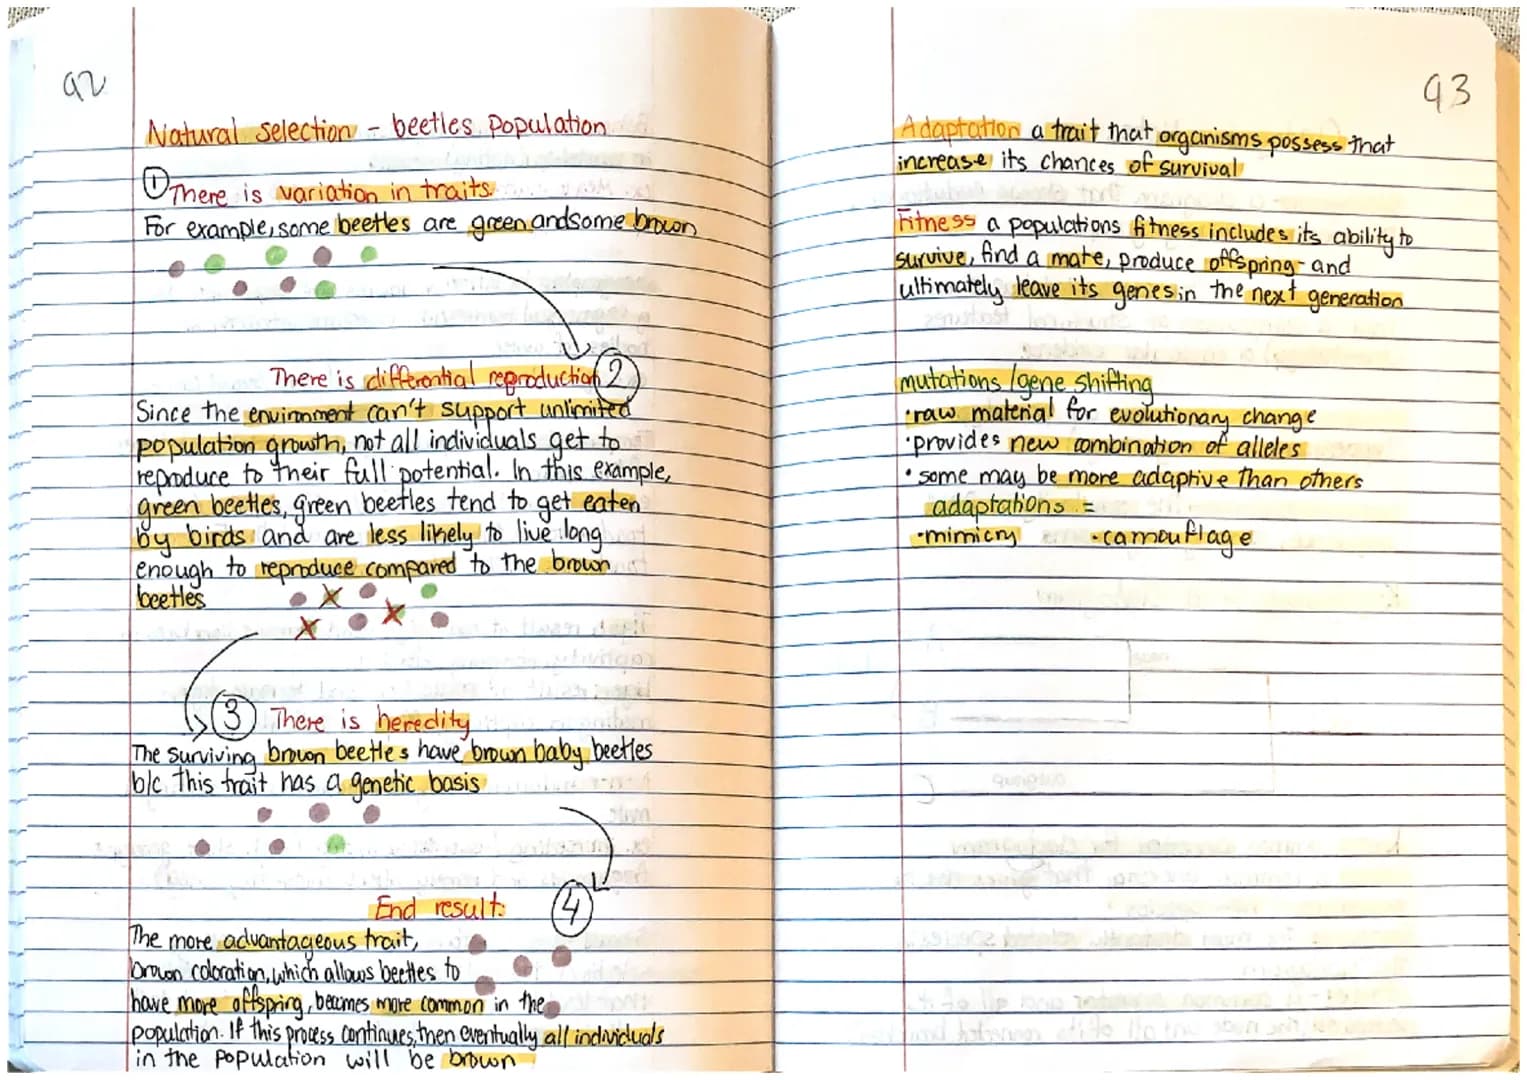 92
Natural Selection - beetles population
① There is variation in traits.
For example, some beetles are green and some brown
There is differential reproduction ②
Since the environment can't support unlimited
population growth, not all individuals get to
reproduce to their full potential. In this example,
green beetles, green beetles tend to get eaten
by birds and are less likely to live long
enough to reproduce compared to the brown
beetles
③ There is heredity
The surviving brown beetles have brown baby beetles
b/c this trait has a genetic basis
End result: ④
The more advantageous trait,
brown coloration, which allows beetles to
have more offspring, becomes more common in the
population. If this process continues, then eventually all individuals
in the population will be brown
93
Adaptation a trait that organisms possess that
increase its chances of survival
Fitness a populations fitness includes its ability to
survive, find a mate, produce offspring - and
ultimately leave its genes in the next generation
mutations / gene shifting
• raw material for evolutionary change
• provides new combination of alleles
• some may be more adaptive than others
adaptations :=
• mimicry • camouflage